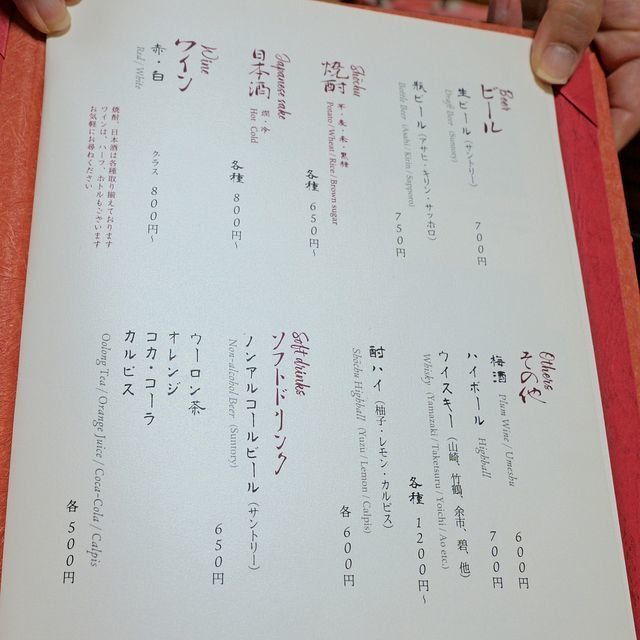 Beer
ビール
生ビール（サントリー）
Draft Beer (Suntory)
700円
瓶ビール（アサヒ・キリン・サッポロ）
Bottle Beer (Asahi / Kirin / Sapporo)
750円
Shōchu
焼酎 芋・麦・米・黒糖
Potato / Wheat / Rice / Brown sugar
各種 650円〜
Japanese sake
日本酒 燗・冷
Hot Cold
各種 800円〜
Wine
ワイン
赤・白
Red / White
グラス 800円〜
焼酎、日本酒は各種取り揃えております
ワインは、ハーフ、ボトルもございます
お気軽にお尋ねください
Others
その他
梅酒 Plum Wine / Umeshu
600円
ハイボール Highball
700円
ウイスキー（山崎、竹鶴、余市、碧、他）
Whisky (Yamazaki / Taketsuru / Yoichi / Ao etc.)
各種 1200円〜
酎ハイ（柚子・レモン・カルピス）
Shōchu Highball (Yuzu / Lemon / Calpis)
各 600円
Soft drinks
ソフトドリンク
ノンアルコールビール（サントリー）
Non-alcohol Beer (Suntory)
650円
ウーロン茶
オレンジ
コカ・コーラ
カルピス
Oolong Tea / Orange Juice / Coca-Cola / Calpis
各 500円